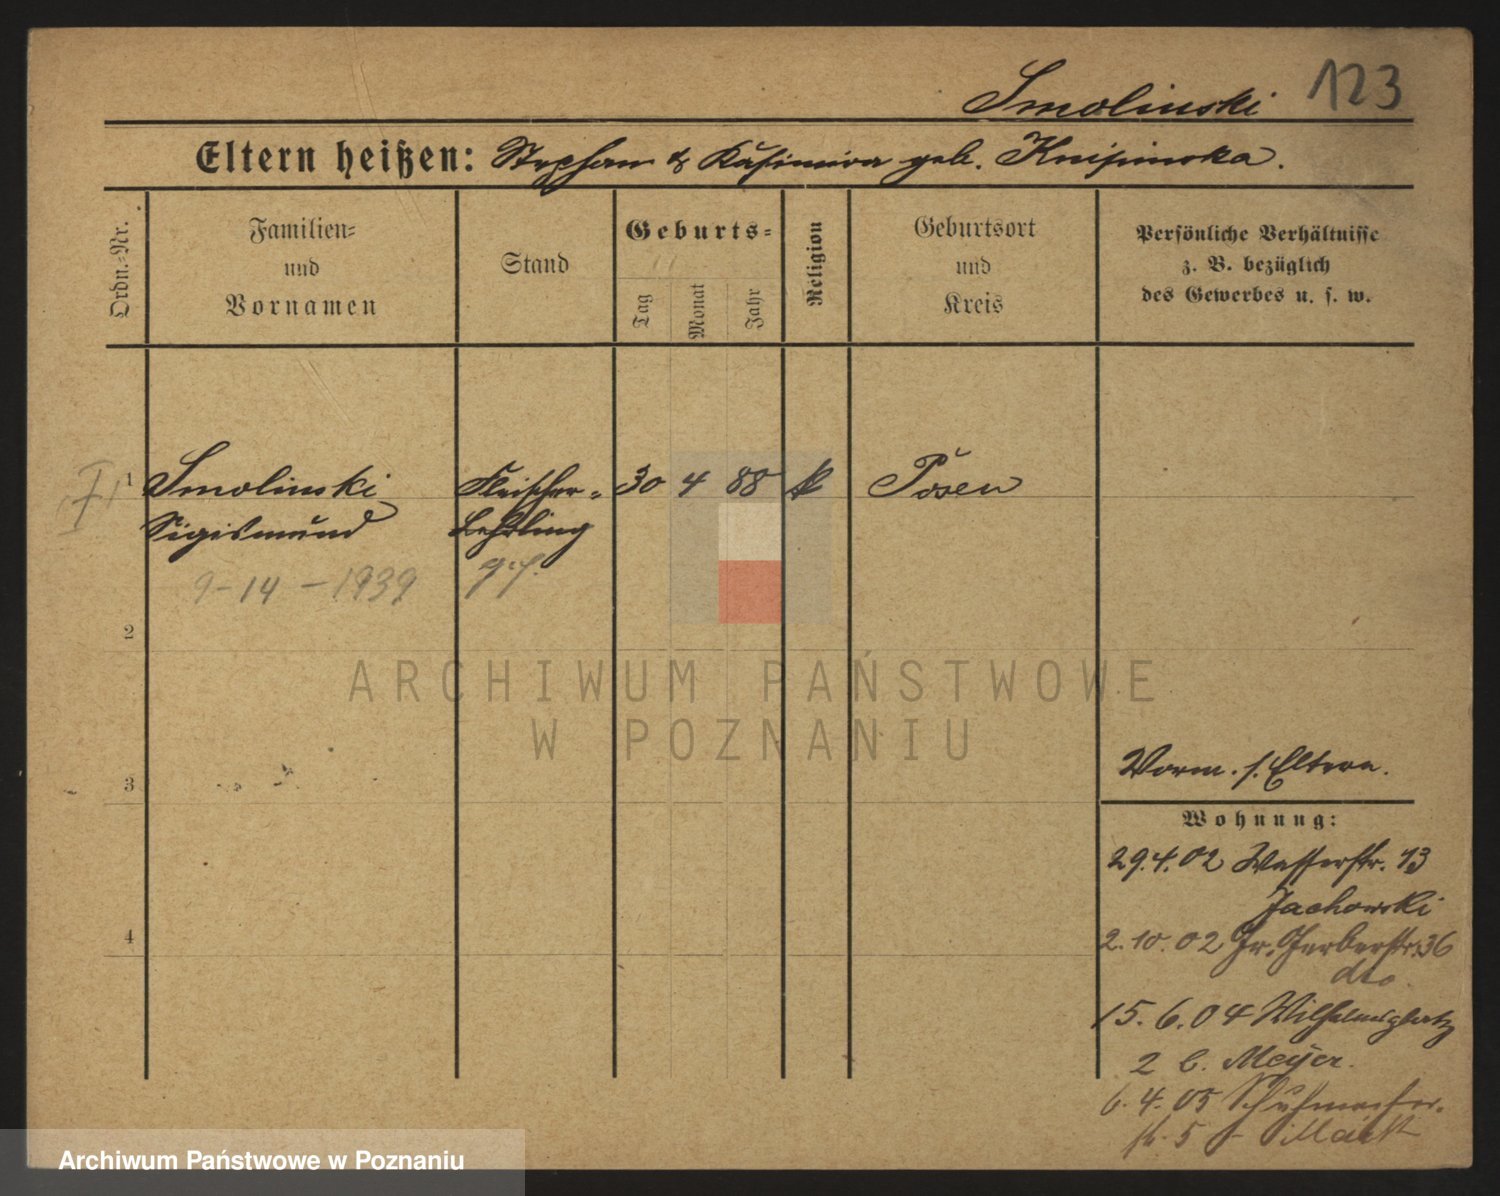 Smolinski 123
Eltern heißen: Stephan & Kasimira geb. Knipinska.
Ordn.-Nr.
Familien-
und
Vornamen
Stand
Geburts-
Tag
Monat
Jahr
Religion
Geburtsort
und
Kreis
Persönliche Verhältnisse
z. B. bezüglich
des Gewerbes u. s. w.
1 Smolinski Fleischer- 30 4 88 k Posen
Sigismund Lehrling
9-14-1939
2
ARCHIWUM PAŃSTWOWE
W POZNANIU
3
Vorm. s. Eltern.
Wohnung:
29.4.02 Wasserstr. 13
Jachowski
4
2.10.02 Gr. Gerberstr. 36
dto.
15.6.04 Wilhelmsplatz
2 b. Meyer.
6.4.05 Schuhmacher-
str. 5
Archiwum Państwowe w Poznaniu